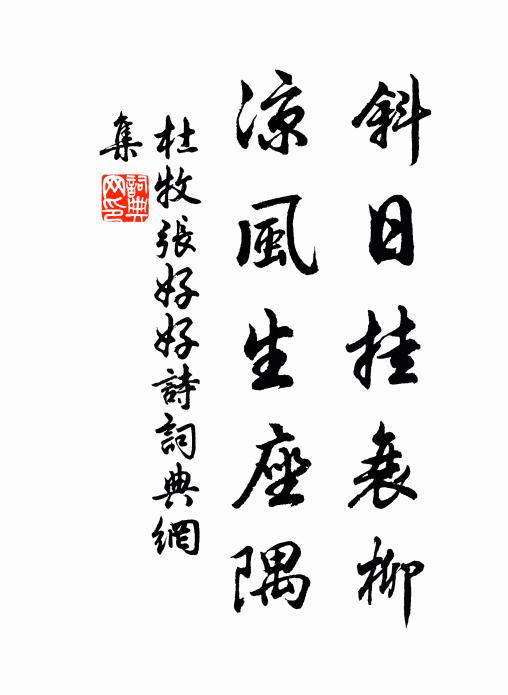 斜日挂衰柳
涼風生座隅
杜牧張好好詩詞典網
集
詞典
网印